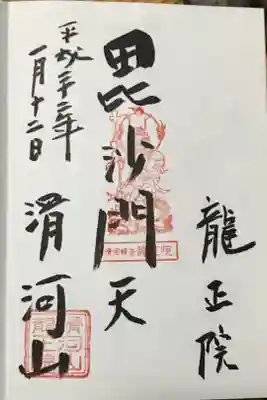 龍正院
毘沙門天
滑河山
平成二十二年
一月十二日